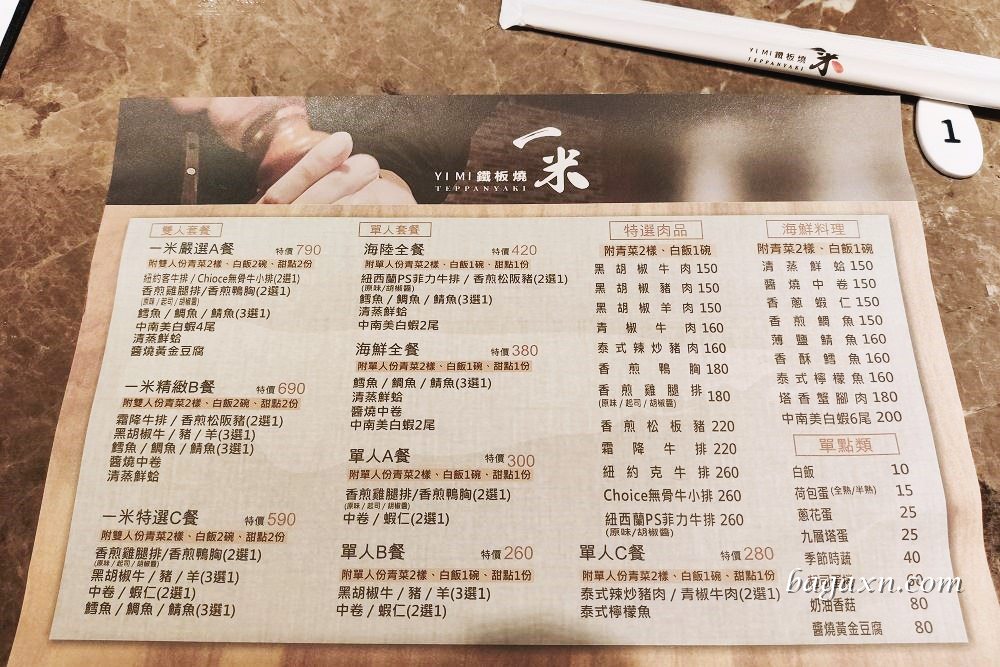 YI MI 鐵板燒 一米
TEPPANYAKI
1
一米
YI MI 鐵板燒
TEPPANYAKI
雙人套餐
一米嚴選A餐 特價790
附雙人份青菜2樣、白飯2碗、甜點2份
紐約客牛排 / Chioce無骨牛小排(2選1)
香煎雞腿排/香煎鴨胸(2選1)
(原味 / 起司 / 胡椒醬)
鱈魚 / 鯛魚 / 鯖魚(3選1)
中南美白蝦4尾
清蒸鮮蛤
醬燒黃金豆腐
一米精緻B餐 特價690
附雙人份青菜2樣、白飯2碗、甜點2份
霜降牛排 / 香煎松阪豬(2選1)
黑胡椒牛 / 豬 / 羊(3選1)
鱈魚 / 鯛魚 / 鯖魚(3選1)
醬燒中卷
清蒸鮮蛤
一米特選C餐 特價590
附雙人份青菜2樣、白飯2碗、甜點2份
香煎雞腿排/香煎鴨胸(2選1)
(原味 / 起司 / 胡椒醬)
黑胡椒牛 / 豬 / 羊(3選1)
中卷 / 蝦仁(2選1)
鱈魚 / 鯛魚 / 鯖魚(3選1)
單人套餐
海陸全餐 特價420
附單人份青菜2樣、白飯1碗、甜點1份
紐西蘭PS菲力牛排 / 香煎松阪豬(2選1)
(原味/胡椒醬)
鱈魚 / 鯛魚 / 鯖魚(3選1)
清蒸鮮蛤
中南美白蝦2尾
海鮮全餐 特價380
附單人份青菜2樣、白飯1碗、甜點1份
鱈魚 / 鯛魚 / 鯖魚(3選1)
清蒸鮮蛤
醬燒中卷
中南美白蝦2尾
單人A餐 特價300
附單人份青菜2樣、白飯1碗、甜點1份
香煎雞腿排/香煎鴨胸(2選1)
(原味 / 起司 / 胡椒醬)
中卷 / 蝦仁(2選1)
單人B餐 特價260
附單人份青菜2樣、白飯1碗、甜點1份
黑胡椒牛 / 豬 / 羊(3選1)
中卷 / 蝦仁(2選1)
特選肉品
附青菜2樣、白飯1碗
黑胡椒牛肉 150
黑胡椒豬肉 150
黑胡椒羊肉 150
青椒牛肉 160
泰式辣炒豬肉 160
香煎鴨胸 180
香煎雞腿排 180
(原味 / 起司 / 胡椒醬)
香煎松板豬 220
霜降牛排 220
紐約克牛排 260
Choice無骨牛小排 260
紐西蘭PS菲力牛排 260
(原味/胡椒醬)
單人C餐 特價280
附單人份青菜2樣、白飯1碗、甜點1份
泰式辣炒豬肉 / 青椒牛肉(2選1)
泰式檸檬魚
海鮮料理
附青菜2樣、白飯1碗
清蒸鮮蛤 150
醬燒中卷 150
香蔥蝦仁 150
香煎鯛魚 150
薄鹽鯖魚 160
香酥鱈魚 160
泰式檸檬魚 160
塔香蟹腳肉 180
中南美白蝦6尾 200
單點類
白飯 10
荷包蛋(全熟/半熟) 15
蔥花蛋 25
九層塔蛋 25
季節時蔬 40
60
奶油香菇 80
醬燒黃金豆腐 80
bagaxn.com